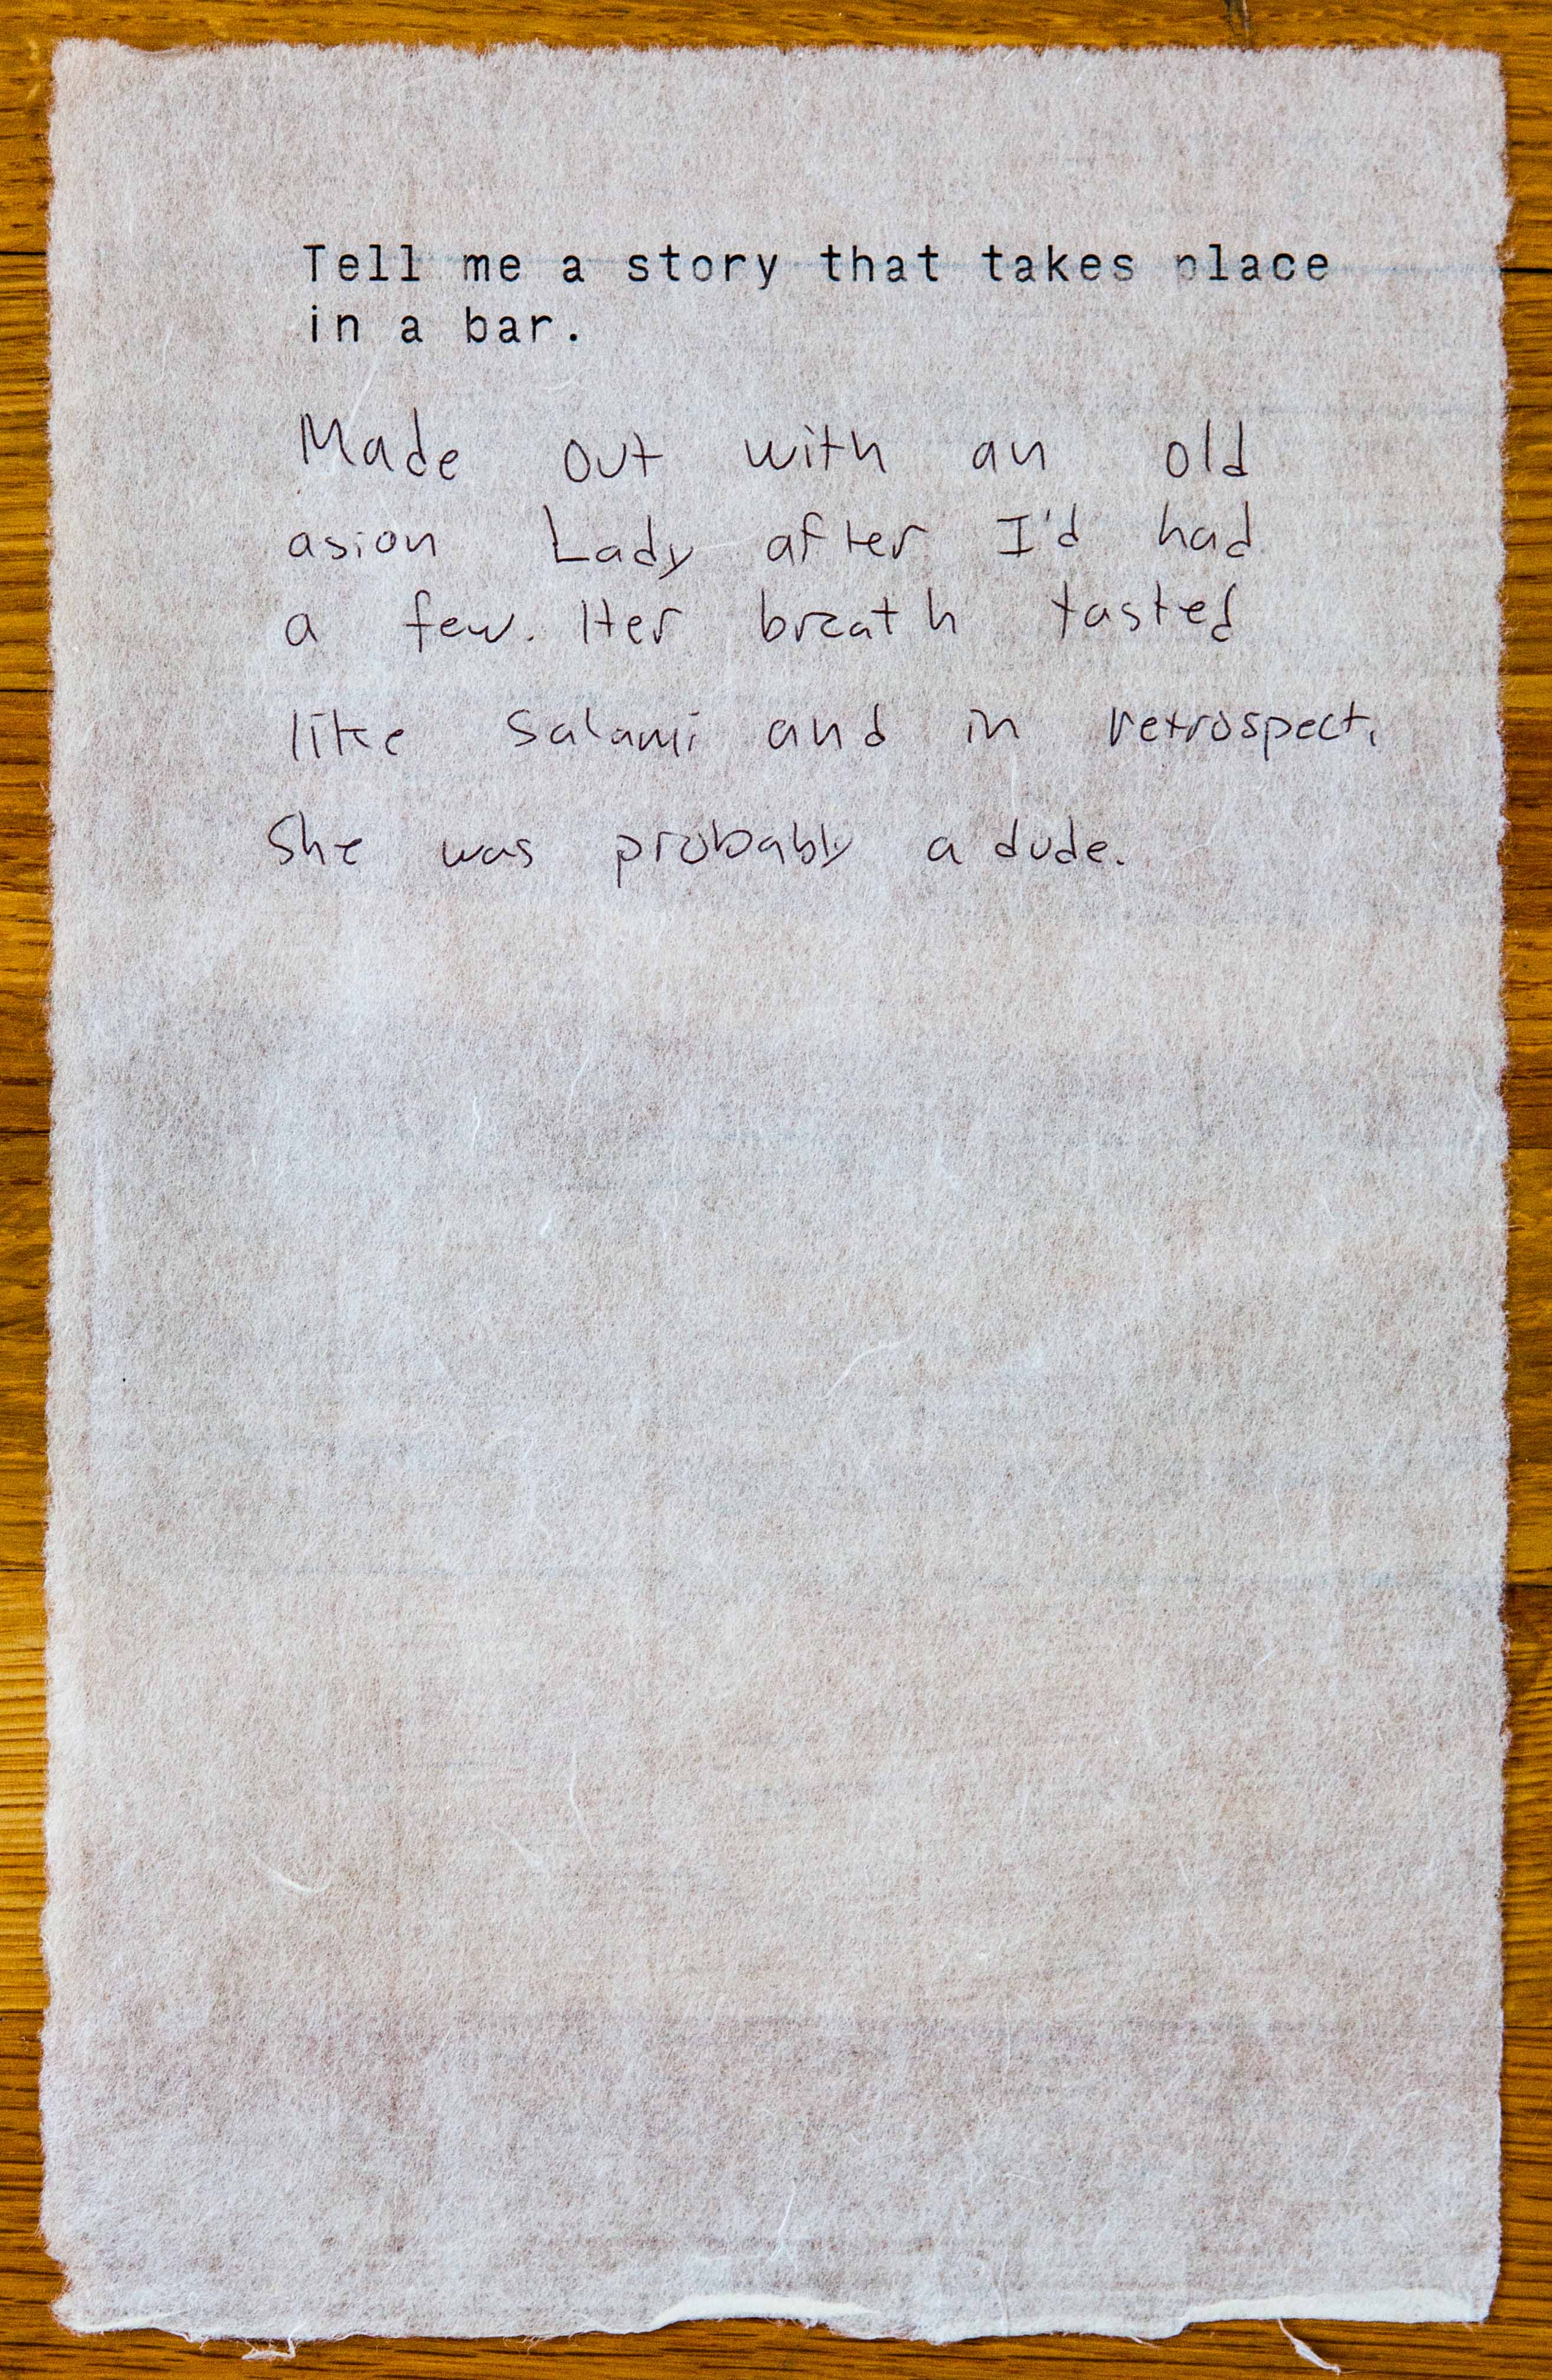 Tell me a story that takes place
in a bar.
Made out with an old
asion Lady after I'd had
a few. Her breath tasted
like Salami and in retrospect,
She was probably a dude.